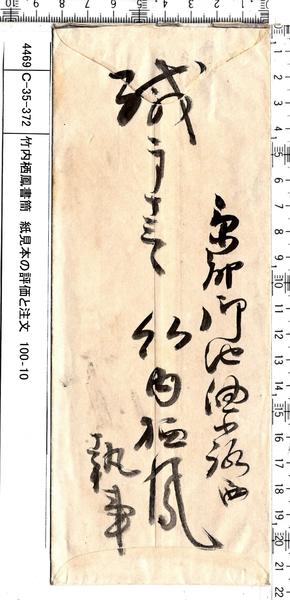 京都御池油小路西
緘 竹内栖鳳
執事
4469 C-35-372 竹内栖鳳書簡 紙見本の評価と注文 100-10